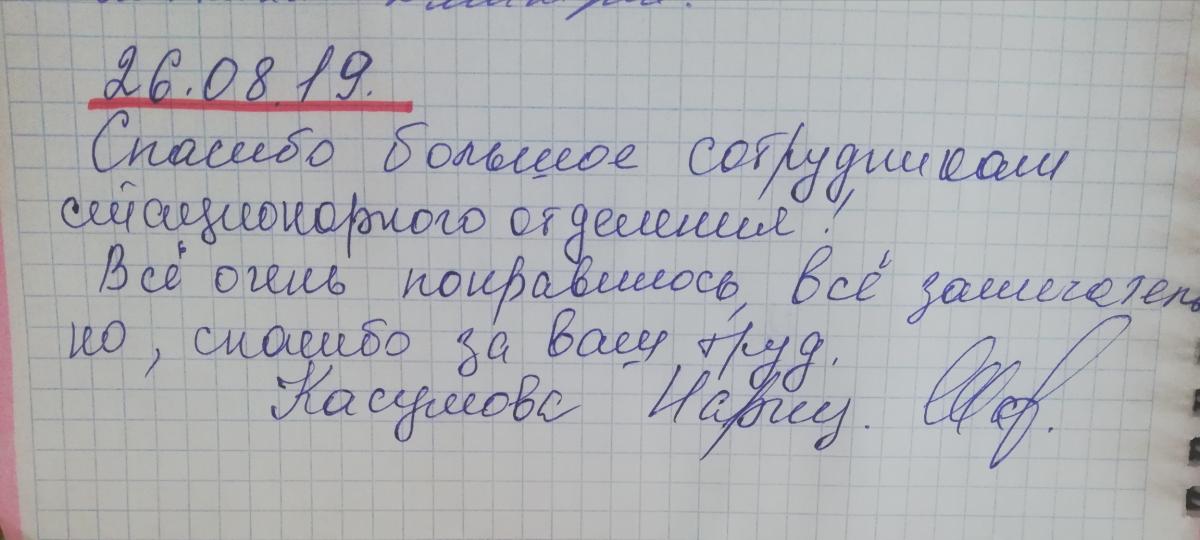 26.08.19.
Спасибо большое сотрудникам
стационарного отделения!
Всё очень понравилось, всё замечатель
но, спасибо за ваш труд.
Касумова